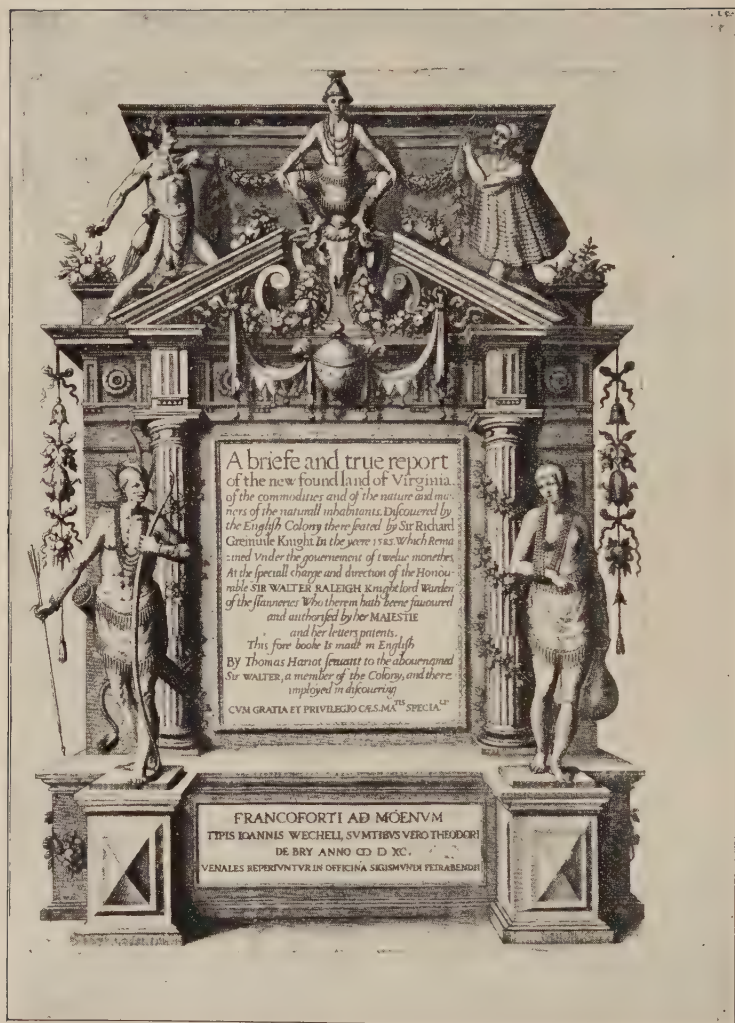 A briefe and true report
of the new found land of Virginia.
of the commodities and of the nature and man-
ners of the naturall inhabitants. Discouered by
the English Colony there seated by Sir Richard
Greinuile Knight In the yeere 1585. Which Rema-
ined Vnder the gouernement of twelue monethes,
At the speciall charge and direction of the Honou-
rable SIR WALTER RALEIGH Knight lord Warden
of the stanneries Who therein hath beene fauoured
and authorised by her MAIESTIE
and her letters patents.
This fore booke Is made in English
By Thomas Hariot seruant to the abouenamed
Sir WALTER, a member of the Colony, and there
imployed in discouering
CVM GRATIA ET PRIVILEGIO CÆS. MA^TIS SPECIA^LI
FRANCOFORTI AD MOENVM
TYPIS IOANNIS WECHELI, SVMTIBVS VERO THEODORI
DE BRY ANNO CIↃ IↃ XC.
VENALES REPERIVNTVR IN OFFICINA SIGISMVNDI FEIRABENDII